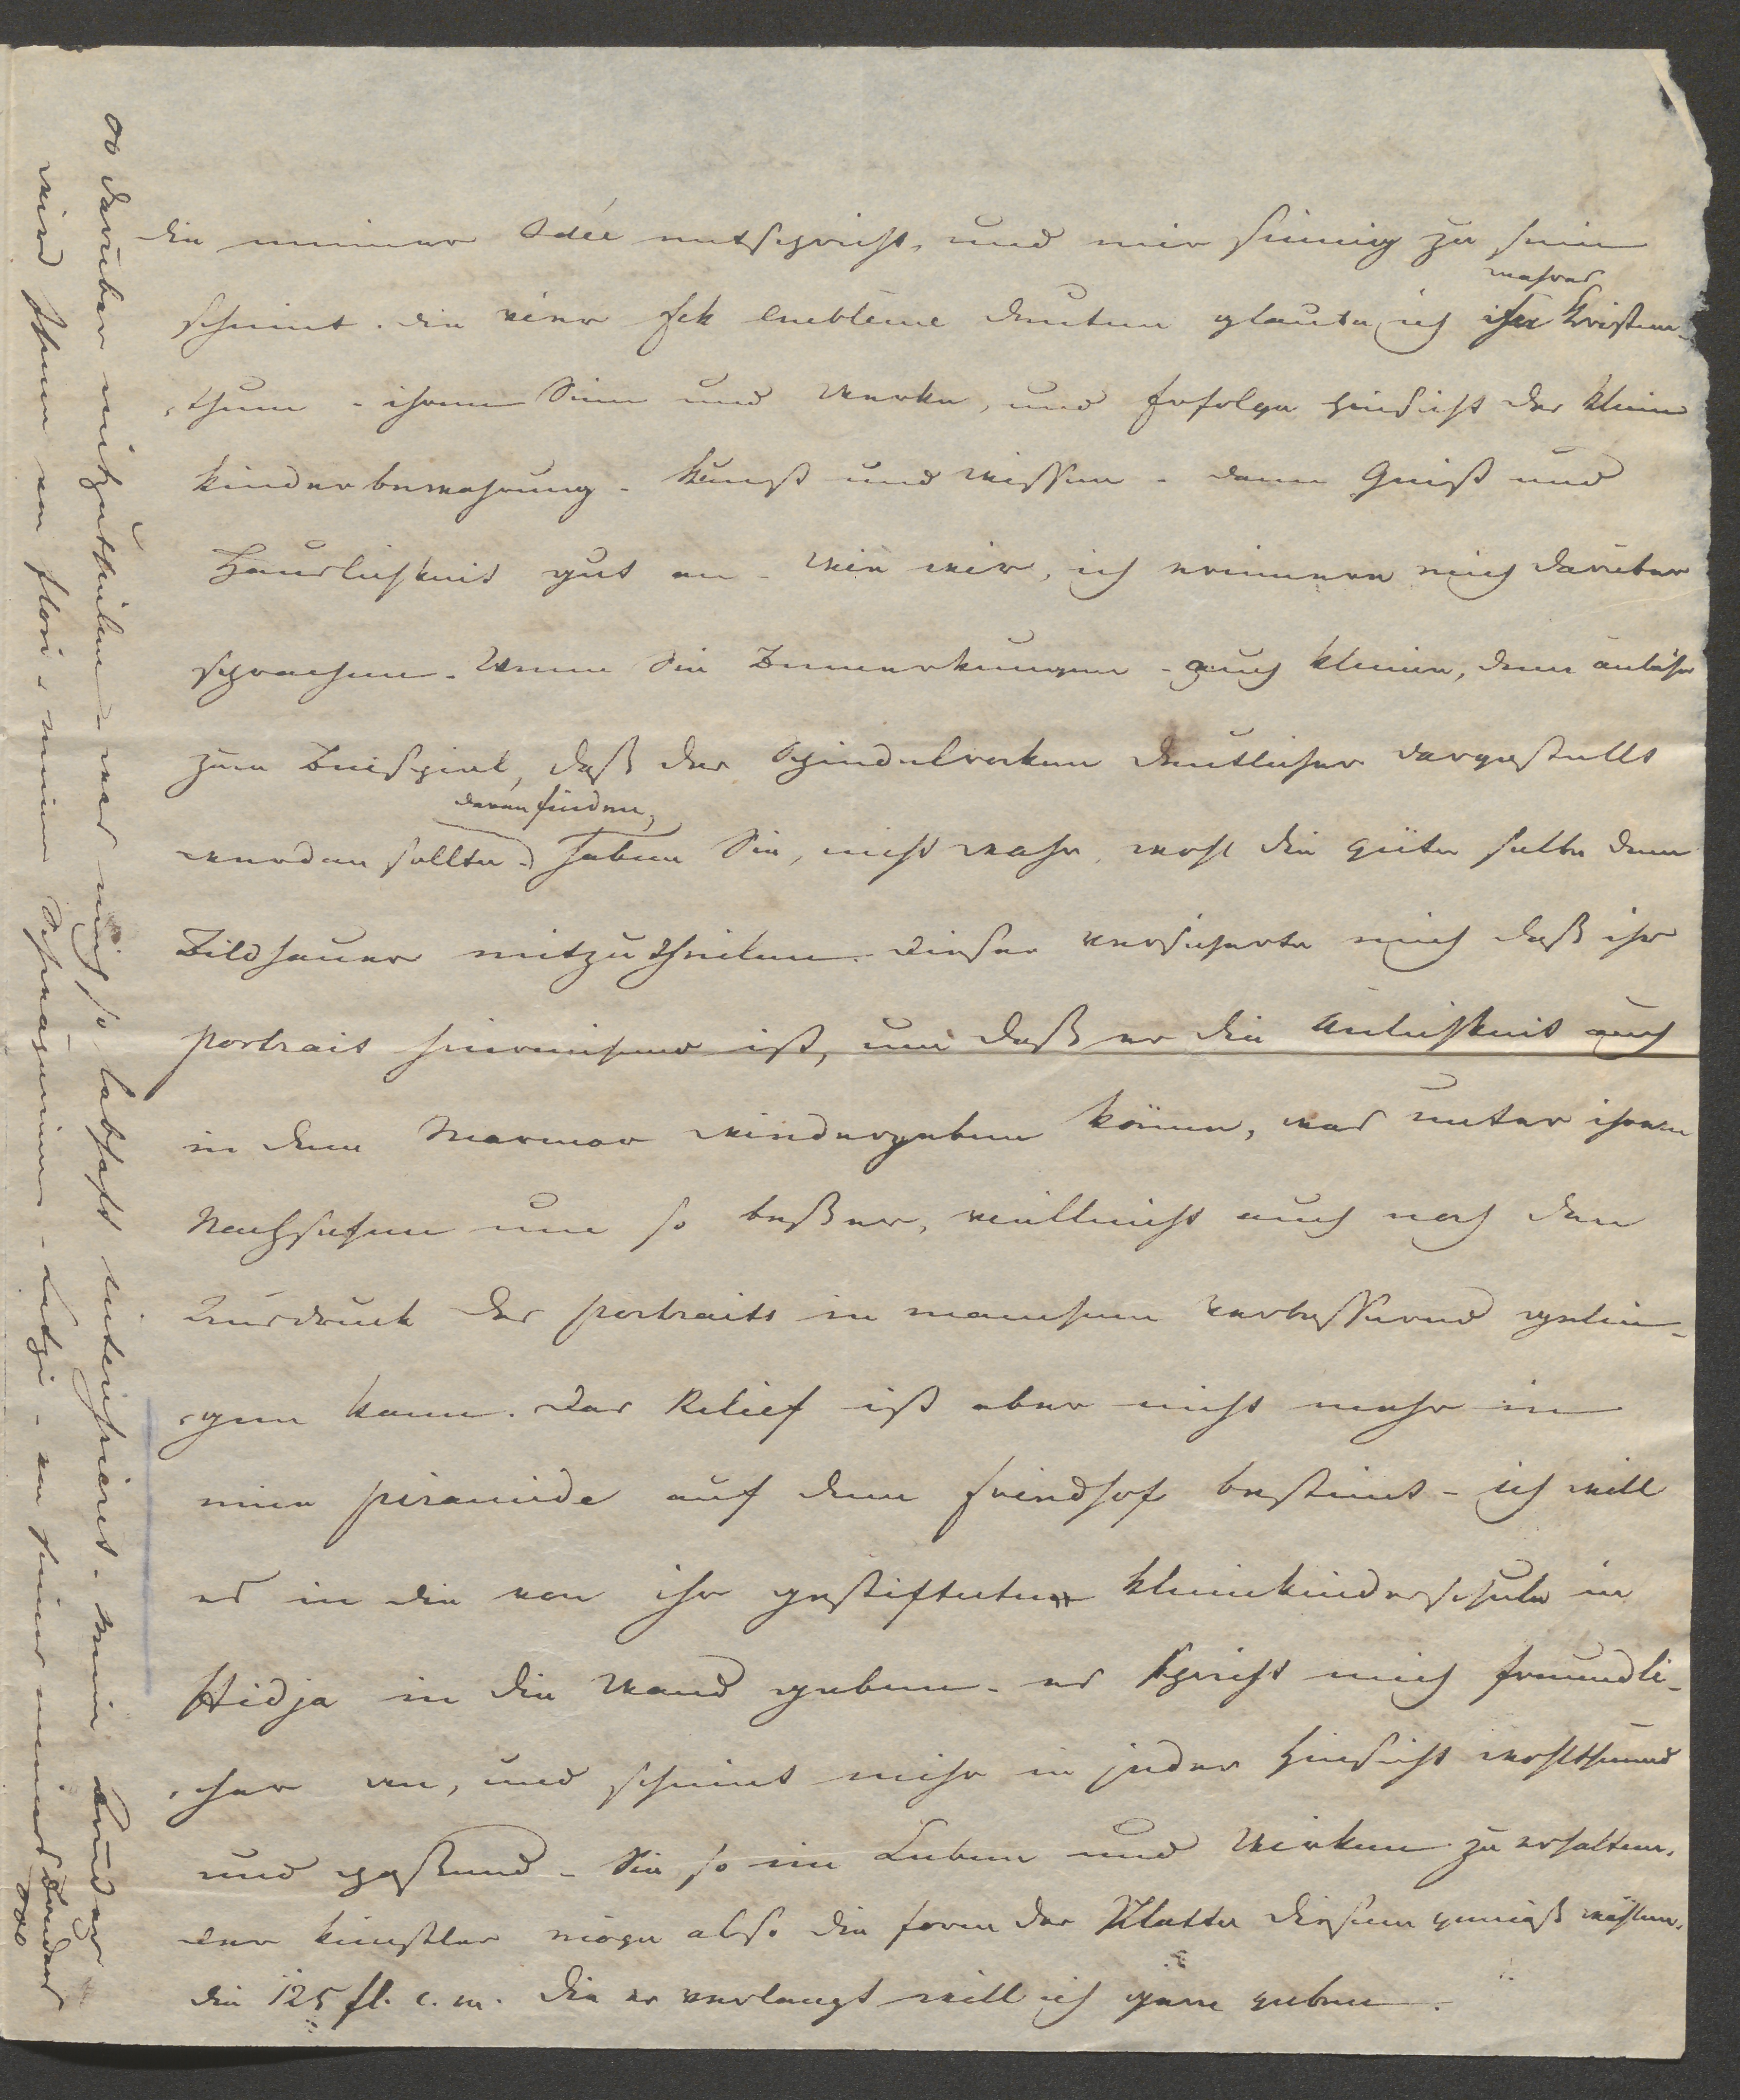 die meiner Idée entspricht, und mir sinnig zu sein
scheint. die vier Eck Emblème deuten glaube ich ihr wahres Kristen-
thum - ihrem Sinn und Werke, und Erfolge hinsicht der klein
kinderbewahrung - Kunst und Wissen - dann Geist und
Häuslichkeit gut an - wie wir, ich erinnere mich darüber
sprachen. Wenn Sie Bemerkungen - auch kleine, denn
zum Beispiel, daß der Spindelrocken deutlicher dargestellt
werden sollte daran finden, haben Sie, nicht wahr, wohl die güte selbe dem
Bildhauer mitzutheilen. dieser versicherte mich daß ihr
portrait hinreichend ist, um daß er die Änlichkeit auch
in dem Marmor wiedergeben könne, was unter ihrem
Nachsehen um so beßer, vielleicht auch noch den
Ausdruck des portraits in manchem verbessernd gelin-
gen kann. Das Relief ist aber nicht mehr in
eine piramide auf dem Friedhof bestimt - ich will
es in die von ihr gestifteten Kleinkinderschule in
Hidja in die Wand geben - es spricht mich freundli-
cher an, und scheint mihr in jeder Hinsicht wohlthuend
und paßend - Sie so im Leben und Wirken zu erhalten.
der Künstler möge also die form der Platte diesem gemäß wählen.
die 125 fl. c. m. die er verlangt will ich gern geben.
darüber mitzutheilen was mich so lebhaft intereßiert. Mein Bruder
wird Ihnen von Flori - meiner Schwägerinn - - von seiner meines Bruders